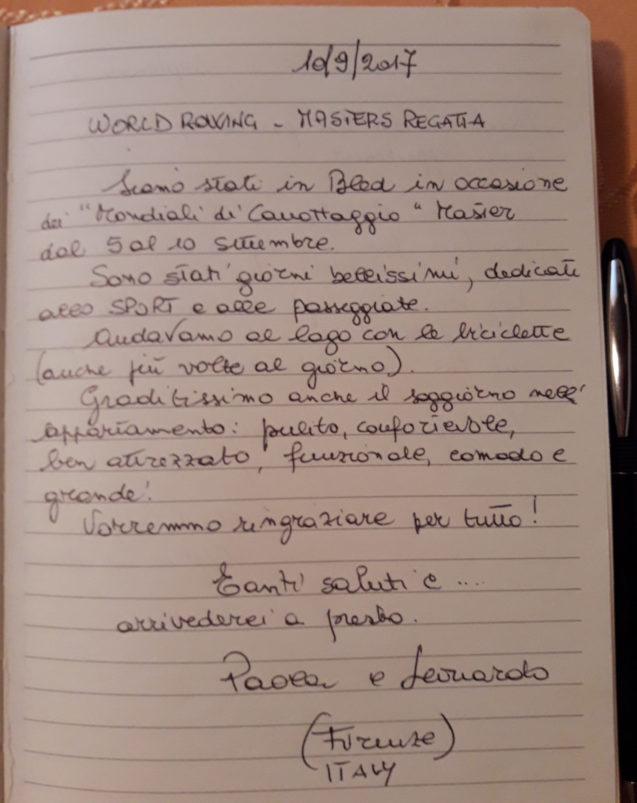 10/9/2017
WORLD ROWING - MASTERS REGATTA
Siamo stati in Bled in occasione
dei "Mondiali di Canottaggio" Master
dal 5 al 10 settembre.
Sono stati giorni bellissimi, dedicati
allo SPORT e alle passeggiate.
Andavamo al lago con le biciclette
(anche più volte al giorno).
Graditissimo anche il soggiorno nell'
appartamento: pulito, confortevole,
ben attrezzato, funzionale, comodo e
grande!
Vorremmo ringraziare per tutto!
Tanti saluti e ....
arrivederci a presto.
Paola e Leonardo
(Firenze)
ITALY